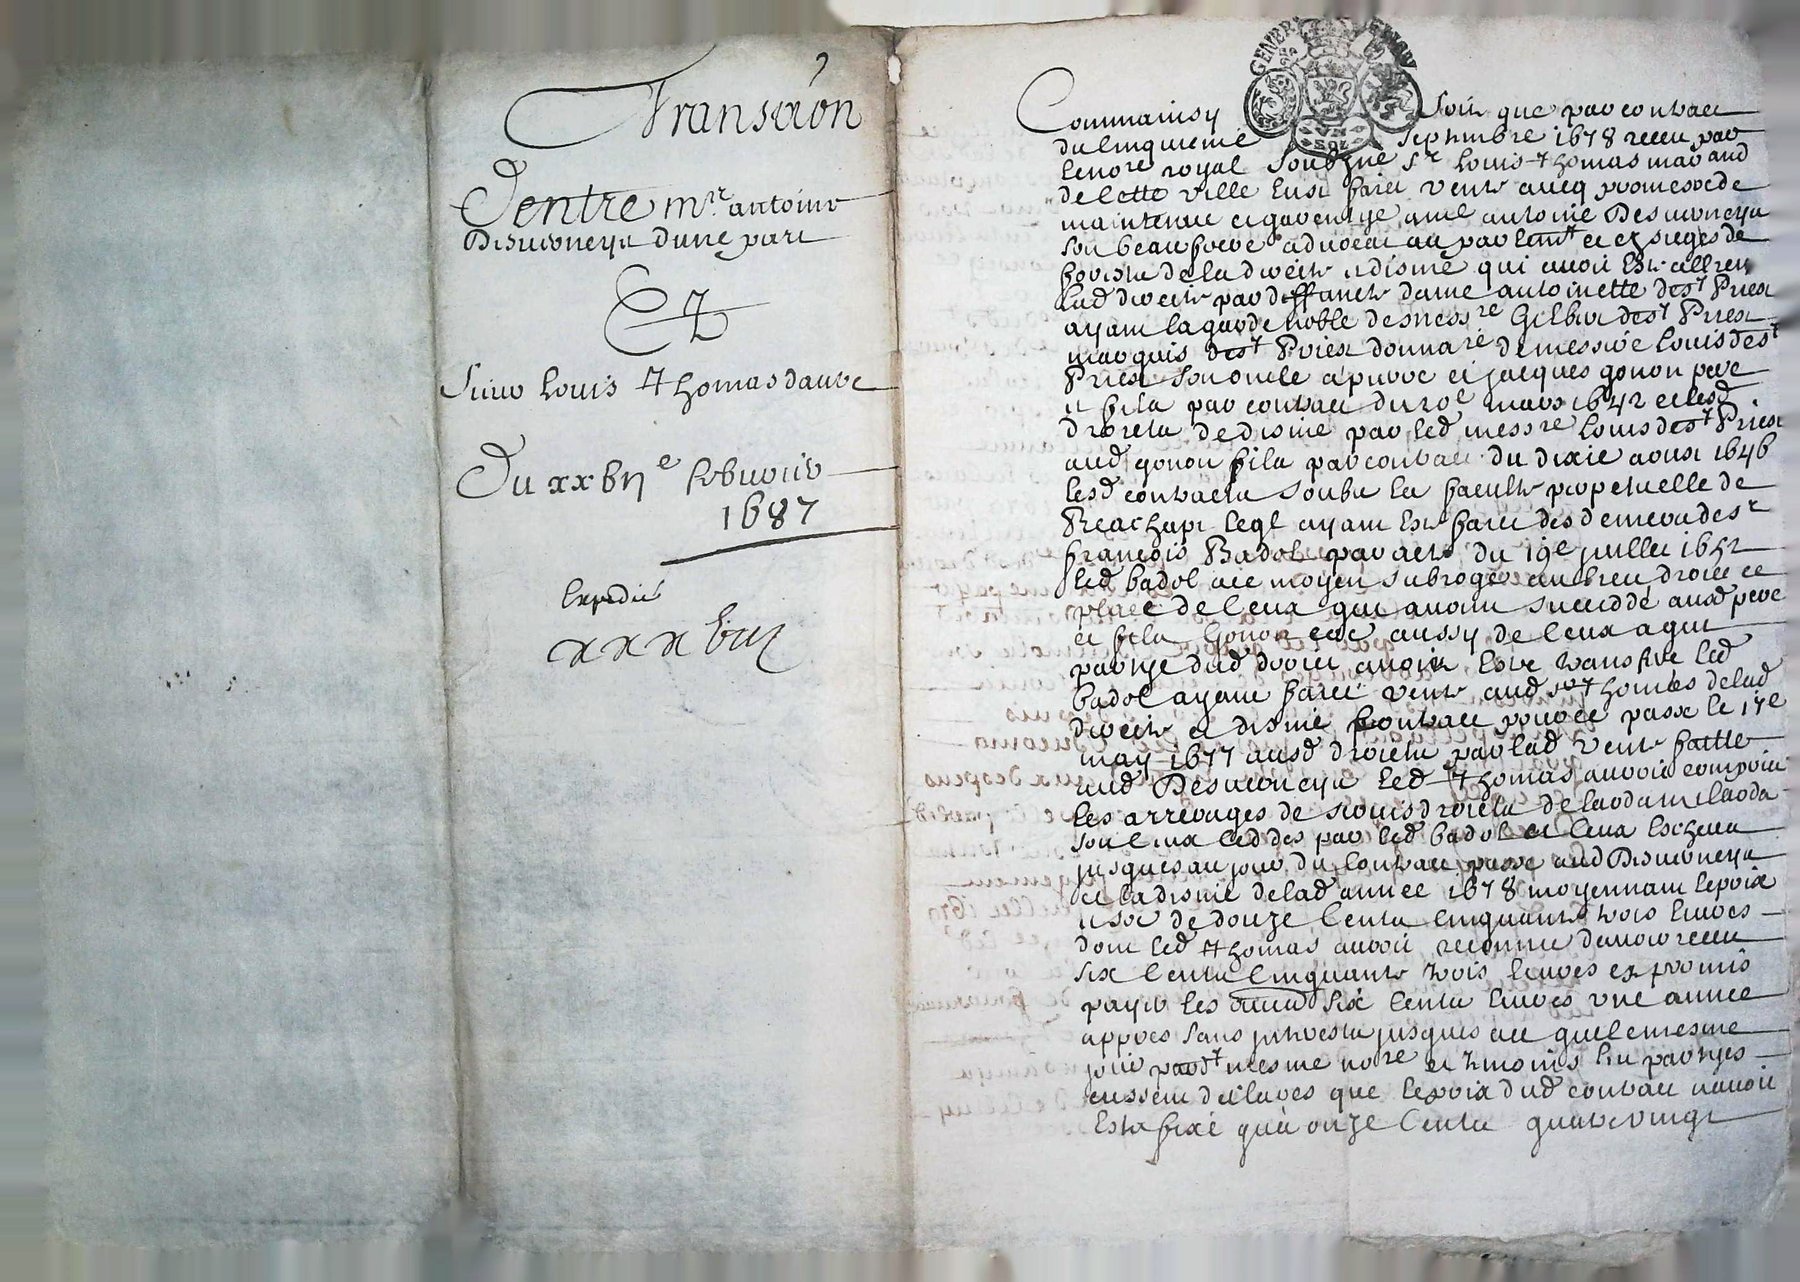 Transaon
Dentre mre antoine
Desmoneyn dune part
Et
Sieur louis Thomas dautre
Du xxbije febvrier
1687
Expedié
GENER
SOL
Commainsy Soit que par contract
du cinquieme septembre 1678 receu par
le nore royal soubzne sr louis Thomas marand
de cette ville eust faict vente avecq promesse de
maintenue et garentye a me antoine Desmoneyn
son beaufrere advocat au parlemt et ez sieges de
de la directe et disme qui avoit esté
lad directe par deffuncte dame antoinette de st Priest
ayant la garde noble de messre Gilbert de st Priest
marquis de st Priest donnare de messire louis de st
Priest son oncle et jacques gonon pere
et fils par contract du 20e mars 1642 et lesd
droicts de disme par led messre louis de st Priest
aud gonon fils par contract du dixie aoust 1646
lesd contracts soubs la faculté perpetuelle de
Reachapt leql ayant esté faict des deniers de sr
françois Badol par acte du 19e juillet 1652
led badol au moyen subrogé au lieu droict et
place de ceux qui avoient succeddé ausd pere
et fils Gonon et aussy de ceux a qui
partye dud droict avoit esté transferé led
badol ayant faict vente aud sr Thomas de lad
directe et disme contract privée passé le 17e
may 1677 ausd droicts par lad vente faicte
aud Desmoneyn led Thomas auroit compris
les arrerages de
a luy ceddes par led badol et ceux escheus
jusques au jour du contract passé aud Desmoneyn
et la disme de lad année 1678 moyennant le prix
de douze cents cinquante trois livres
dont led Thomas auroit reconnu d'avoir receu
six cents cinquante trois livres et promis
payer les six cents livres une année
appres sans interests jusques au quel mesme
jour pardt mesme nore et tmoins les partyes
eussent declaré que le prix dud contract n'avoit
esté fixé qu'a onze cents quatrevingt